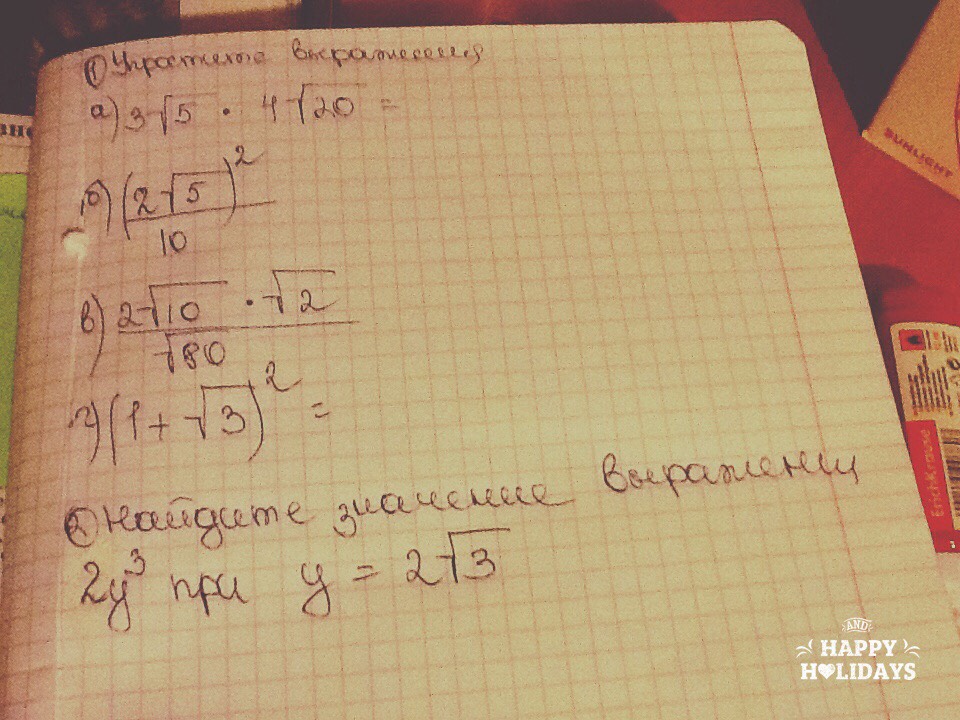 ① Упростите выражения
а) 3√5 · 4√20 =
б) (2√5 / 10)²
в) 2√10 · √2 / √80
г) (1 + √3)² =
② Найдите значение выражени
2y³ при y = 2√3
SUNLIGHT
Erich Krause
AND
HAPPY
HOLIDAYS